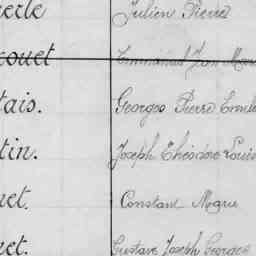 Julien Pierre
couet Emmanuel Jean Marie
tais. Georges Pierre
tin. Joseph Théodore Louis
uet. Constant Marie
uet. Gustave Joseph Georges